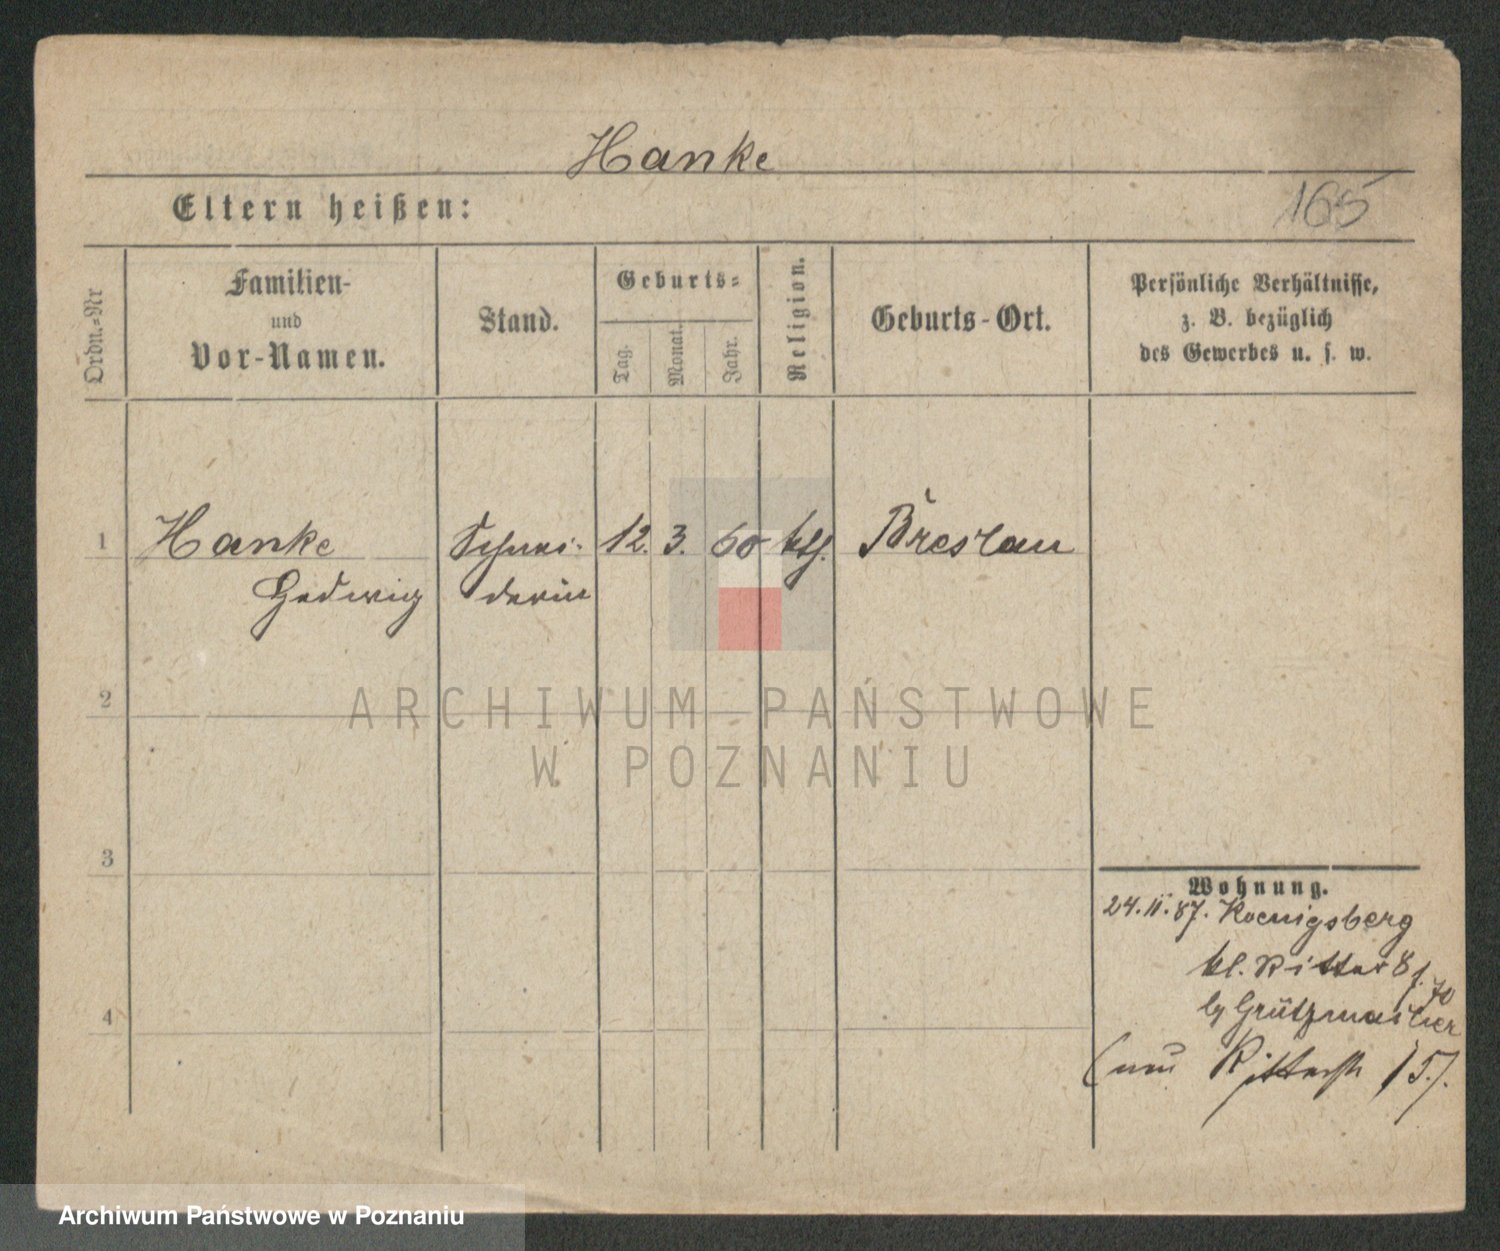 Hanke
Eltern heißen:
165
Ordn.-Nr
Familien-
und
Vor-Namen.
Stand.
Geburts-
Tag.
Monat.
Jahr.
Religion.
Geburts-Ort.
Persönliche Verhältnisse,
z. B. bezüglich
des Gewerbes u. s. w.
1 Hanke Schnei- 12. 3. 60 kth. Breslau
Hedwig derin
2
ARCHIWUM PAŃSTWOWE
W POZNANIU
3
Wohnung.
24.11.87. Koenigsberg
kl. Ritter
by Grützmacher
(neu Ritterstr 15).
4
Archiwum Państwowe w Poznaniu